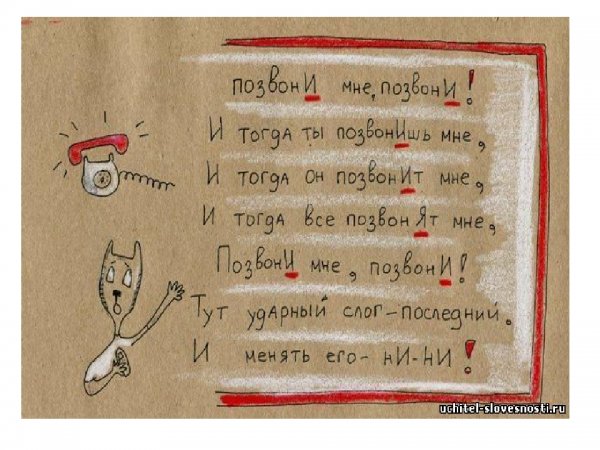 позвонИ мне, позвонИ!
И тогда ты позвонИшь мне,
И тогда он позвонИт мне,
И тогда все позвонЯт мне,
ПозвонИ мне, позвонИ!
Тут ударный слог - последний.
И менять его - нИ-нИ!
uchitel-slovesnosti.ru